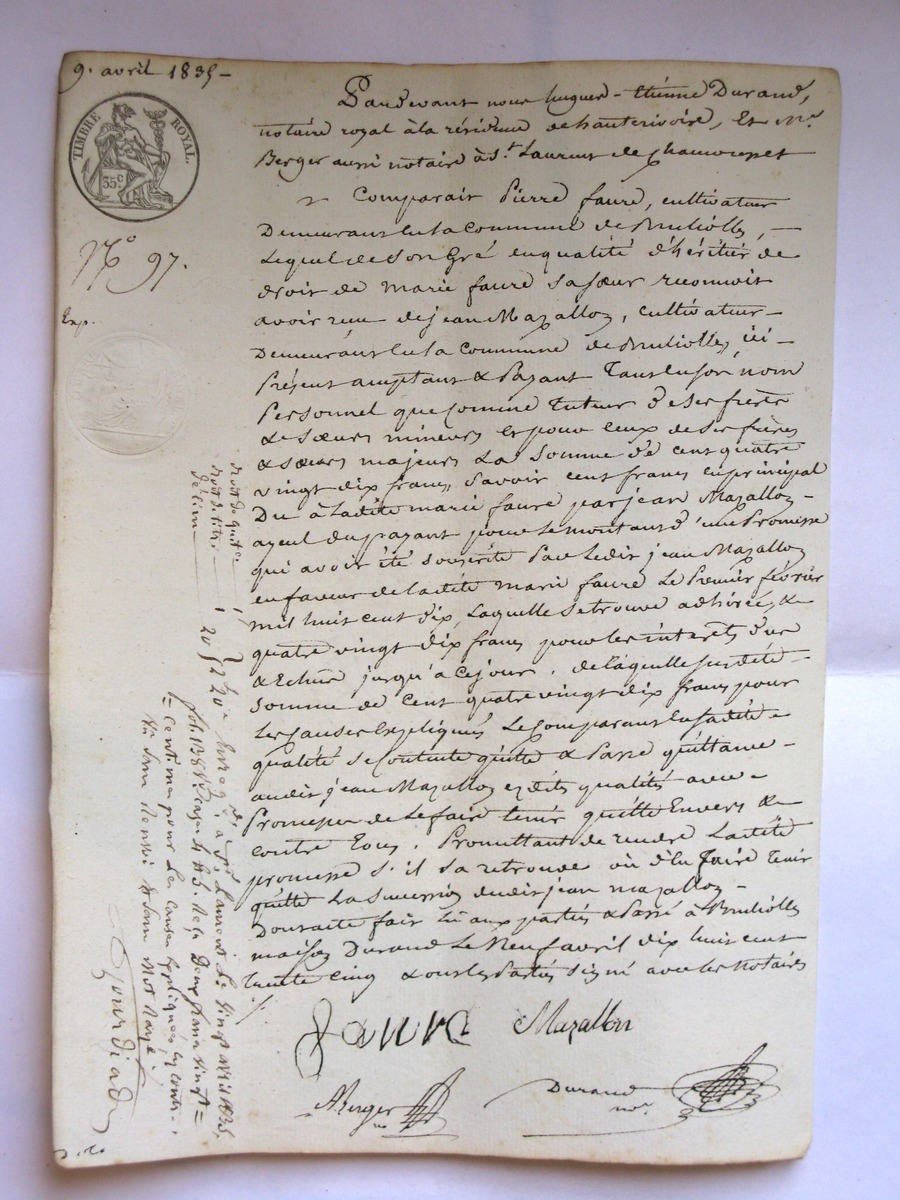 9. avril 1835 -
TIMBRE ROYAL.
35 c
N.o 97.
Exp.
Pardevant nous hugues - Etiénne Durand,
notaire royal à la résidence de hauterivoire, Et Mr.
Berger aussi notaire à St. Laurent de chamousset
Comparait Pierre faure, cultivateur
Demeurant en la Commune de Brulliolles, —
Lequel de son Gré en qualité d'héritier de
droit de marie faure sa sœur reconnoit
avoir reçu de jean Mazallon, cultivateur -
Demeurant en la Commune de Brulliolles, ici -
Présent acceptant & Payant Tant en son nom
Personnel que Comme Tuteur de ses frères
& sœurs mineurs Et pour Ceux de ses frères
& sœurs majeurs La Somme de Cent quatre
vingt dix francs, Savoir cent francs en principal
Du à Ladite marie faure par jean Mazallon -
ayeul du payant pour le montant d'une Promesse
qui avoit été souscrite Par Ledit jean Mazallon
en faveur de Ladite marie faure Le Premier février
mil huit cent dix, Laquelle se trouve adhirée, &
quatre vingt dix francs pour les intérets dus
& Echus jusqu'à Cejour. de laquelle susdite -
somme de Cent quatre vingt dix francs pour
Les Causes Expliqués Le Comparant en sadite -
qualité se Contente quitte & Passe quittance -
audit jean Mazallon esdits qualités avec -
Promesse de Le faire tenir quitte Envers &
contre Tous. Promettant de rendre Ladite
promesse s'il la retrouve où d'en faire Tenir
quitte La succession dudit jean mazallon -
Dont acte fait Lu aux parties & Passé à Brulliolles
maison Durand Le Neuf avril dix huit cent
trente Cinq & ont les Parties signé avec les Notaires
faure Mazallon
Berger no. Durand nore.
droit de quitce. 1
droit de titre 1
décime 20
Enregé. à St. Laurent Le vingt avril 1835,
fol. 138
Centimes pour Les Causes Expliquées cy contre,
Sans Renvoi & Sans Mot Rayé